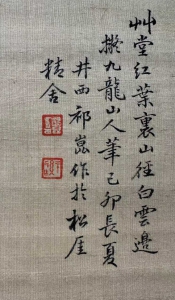 艸堂紅葉裏山徑白雲邊
撫九龍山人筆己卯長夏
井西祁崑作於松厓
精舍